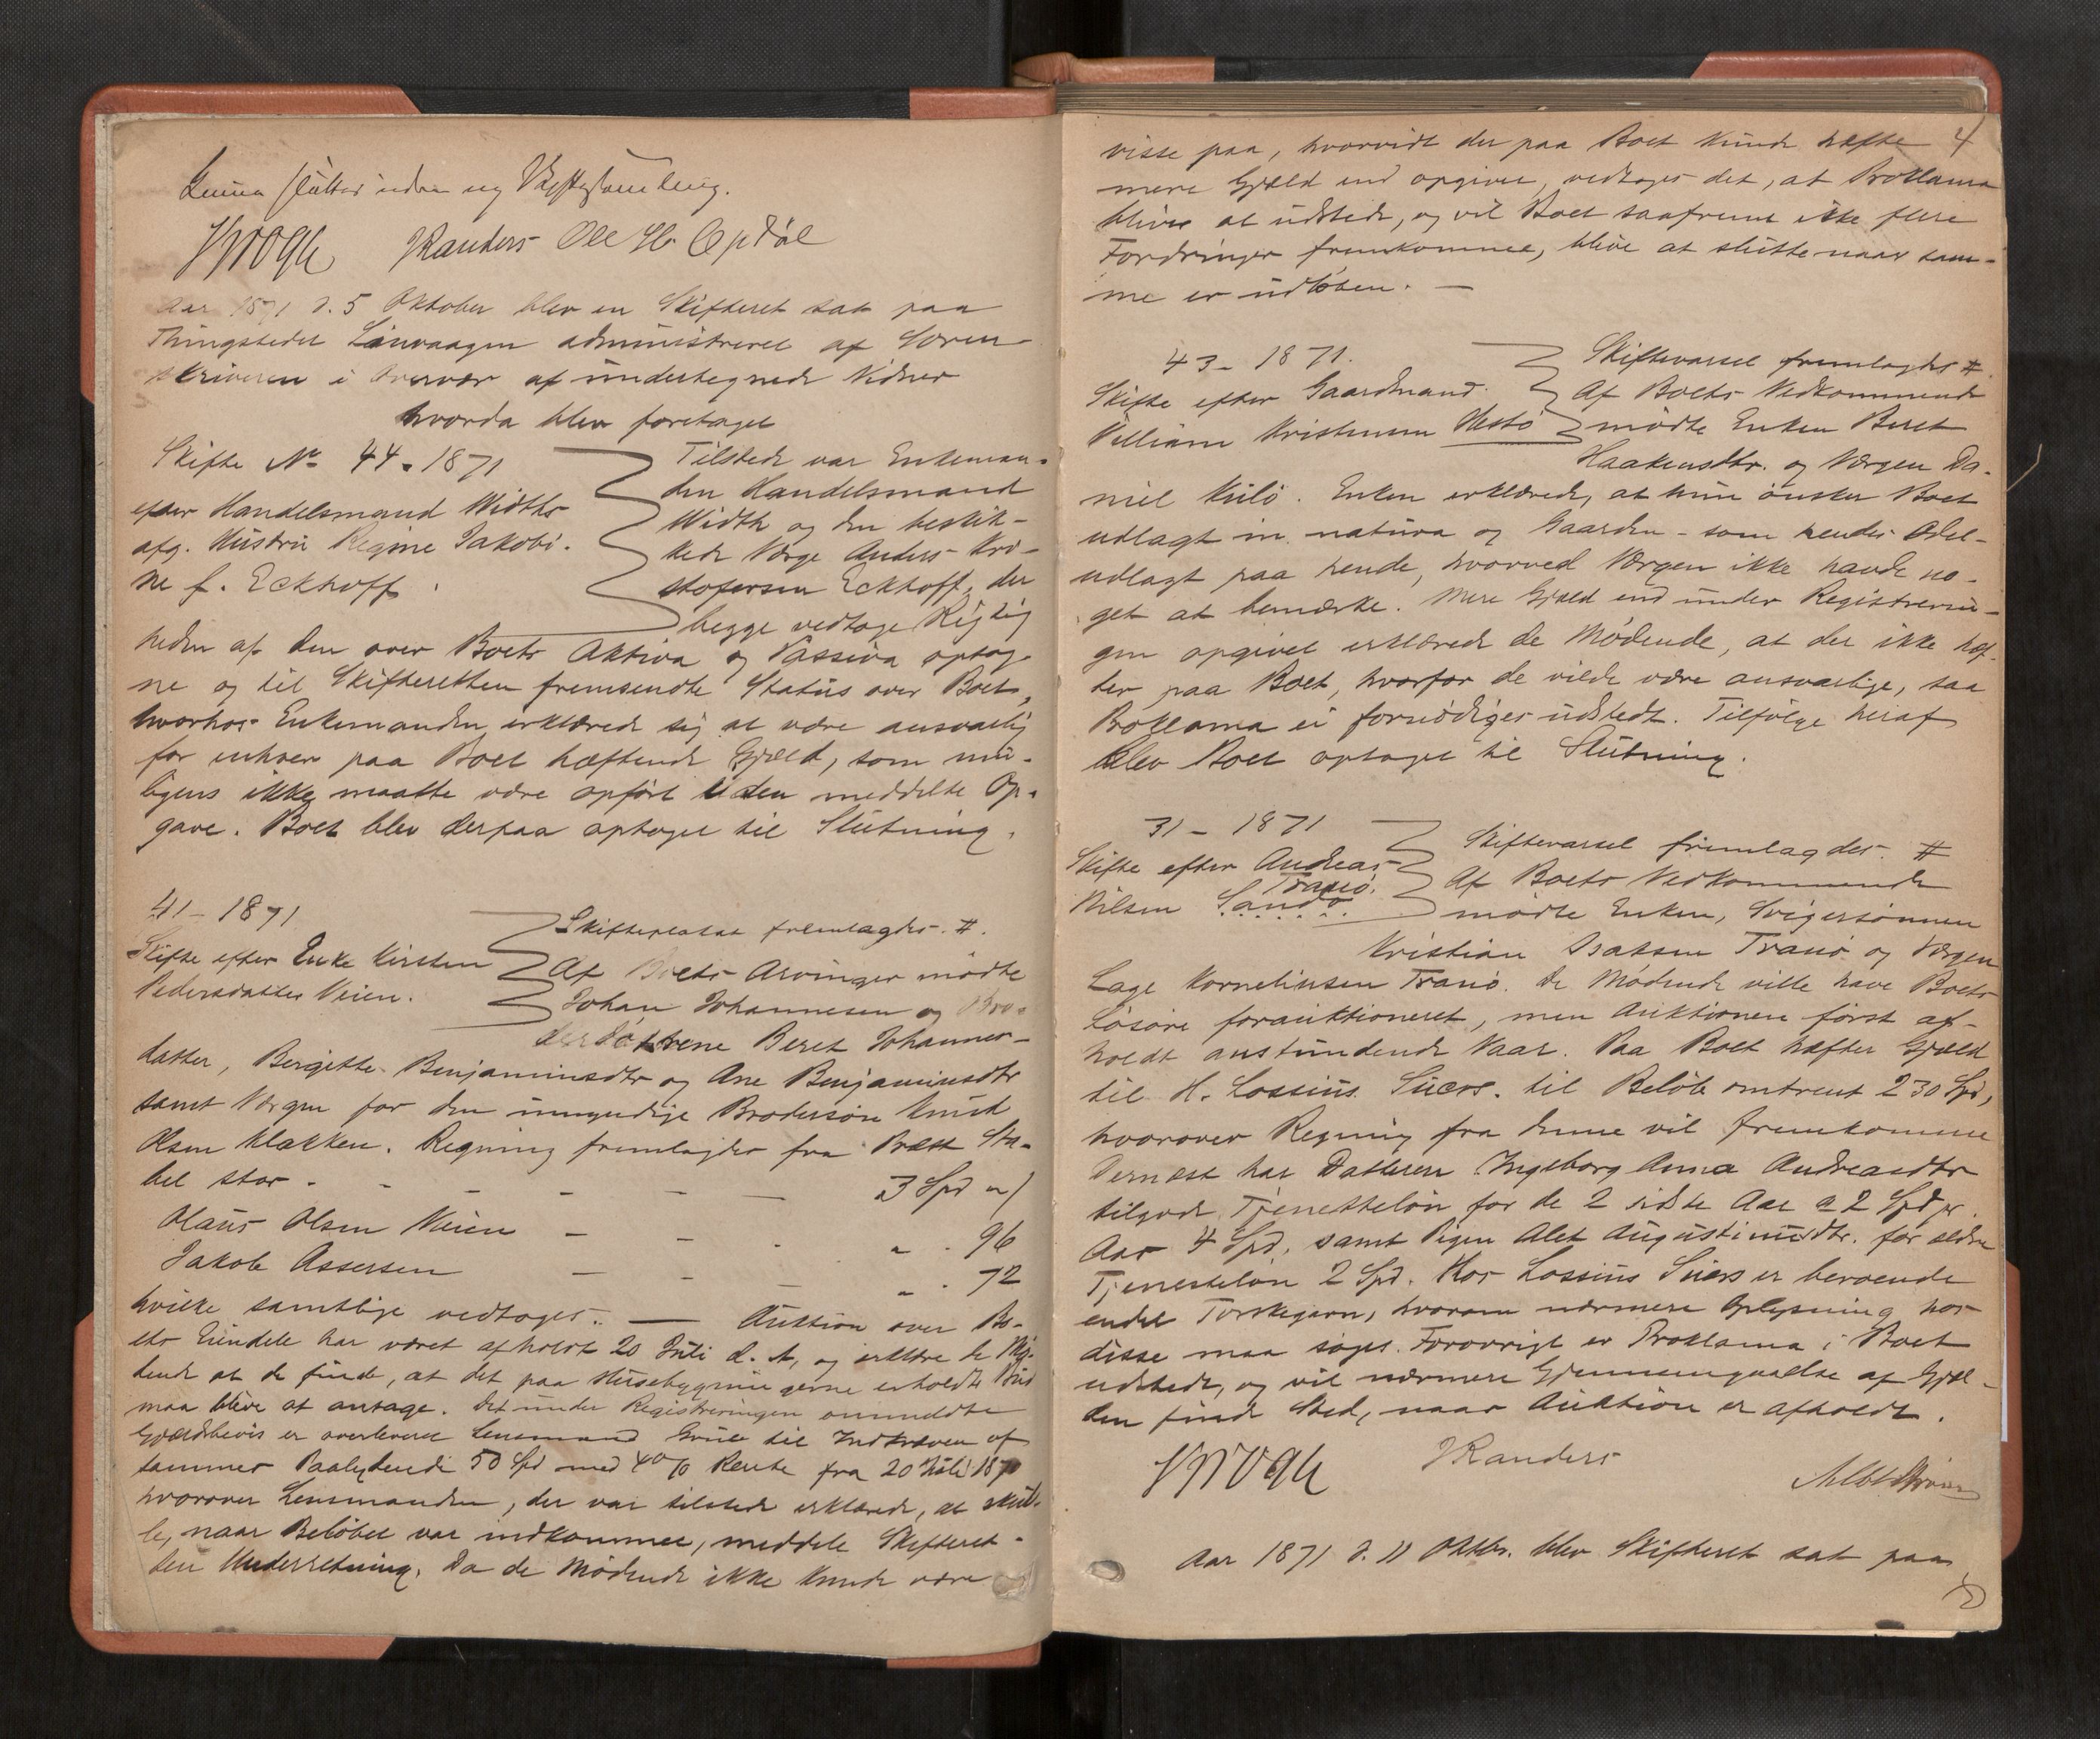 Denne sluttes uden ny Skiftesamling.
JKrogh JRanders Ole Hr. Opdøl
Aar 1871 d. 5 Oktober blev en Skifteret sat paa
Thingstedet Linvaagen administreret af Soren-
skriveren i Overvær af undertegnede Vidner
hvorda blev foretaget
Skifte No 44. 1871
efter Handelsmand Widths
afg. Hustru Regine Jakobi-
ne f. Eckhoff.
Tilstede var Enkeman-
den Handelsmand
Width og den beskik-
kede Værge Anders Kri-
stofersen Eckhoff, der
begge vedtoge Rigtig
heden af den over Boets Aktiva og Passiva optag-
ne og til Skifteretten fremsendte Status over Boet,
hvorhos Enkemanden erklærede sig at være ansvarlig
for enhver paa Boet hæftende Gjæld, som mu-
ligens ikke maatte være opført i den meddelte Op-
gave. Boet blev derpaa optaget til Slutning.
41 - 1871
Skifte efter Enke Kirsten
Pedersdatter Veien.
Skifteplakat fremlagdes. #.
Af Boets Arvinger mødte
Johan Johannesen og Bro-
derdøttrene Beret Johannes-
datter, Bergitte Benjaminsdtr og Ane Benjaminsdtr
samt Værgen for den umyndige Brodersøn Knud
Olsen Klakken. Regning fremlagdes fra Præst Sta-
bel stor - - - - - 3 Spd " /
Olaus Olsen Veien - - - " . 96
Jakob Assersen - - - " . 72
hvilke samtlige vedtoges. — Auktion over Bo-
ets Eiendele har været afholdt 20 Juli d. A, og erklære de Mø-
dende at de finde, at det paa Husebygningerne erholdte Bud
maa blive at antage. Det under Registreringen ommeldte
Gjældsbevis er overleveret Lensmand Grüe til Indkræven af
sammes Paalydende 50 Spd med 4% Rente fra 20 Juli 1870
hvorover Lensmanden, der var tilstede erklærede, at skul-
le, naar Beløbet var indkommet, meddele Skifteret-
ten Underretning. Da de Mødende ikke kunde være
4
visse paa, hvorvidt der paa Boet kunde hæfte
mere Gjæld end opgivet, vedtoges det, at Proklama
bliver at udstede, og vil Boet saafremt ikke flere
Fordringer fremkommer, blive at slutte naar sam-
me er udløben. —
43 - 1871.
Skifte efter Gaardmand
Villiam Kristensen Hestø
Skiftevarsel fremlagdes #.
Af Boets Vedkommende
mødte Enken Beret
Haakensdtr. og Værgen Da-
niel Kulø. Enken erklærede, at hun ønsker Boet
udlagt in natura og Gaarden - som hendes Odel -
udlagt paa hende, hvorved Værgen ikke havde no-
get at bemærke. Mere Gjæld end under Registrerin-
gen opgivet erklærede de Mødende, at der ikke hæf-
ter paa Boet, hvorfor de vilde være ansvarlige, saa
Proklama ei fornødiges udstedt. Tilfølge heraf
blev Boet optaget til Slutning.
31 - 1871
Skifte efter Andreas
Tranø.
Nilsen Sandø.
Skiftevarsel fremlagdes. #
Af Boets Vedkommende
mødte Enken, Svigersønnen
Kristian Isaksen Tranø og Værgen
Lage Kornelinsen Tranø. De Mødende ville have Boets
Løsøre forauktioneret, men Auktionen først af-
holdt anstundende Vaar. Paa Boet hæfter Gjæld
til H. Lossius Sucsr. til Beløb omtrent 230 Spd,
hvorover Regning fra denne vil fremkomme
Dernæst har Datteren Ingeborg Anna Andreasdtr
tilgode Tjenesteløn for de 2 sidste Aar a 2 Spd pr.
Aar 4 Spd, samt Pigen Alet Augustinusdtr. for ældre
Tjenesteløn 2 Spd. Hos Lossius Sucrs er beroende
endel Torskegarn, hvorom nærmere Oplysning hos
disse maa søges. Forøvrigt er Proklama i Boet
udstedt, og vil nærmere Gjennemgaaelse af Gjæl-
den finde Sted, naar Auktion er afholdt.
JKrogh JRanders
Aar 1871 d. 11 Oktbr. blev Skifteret sat paa